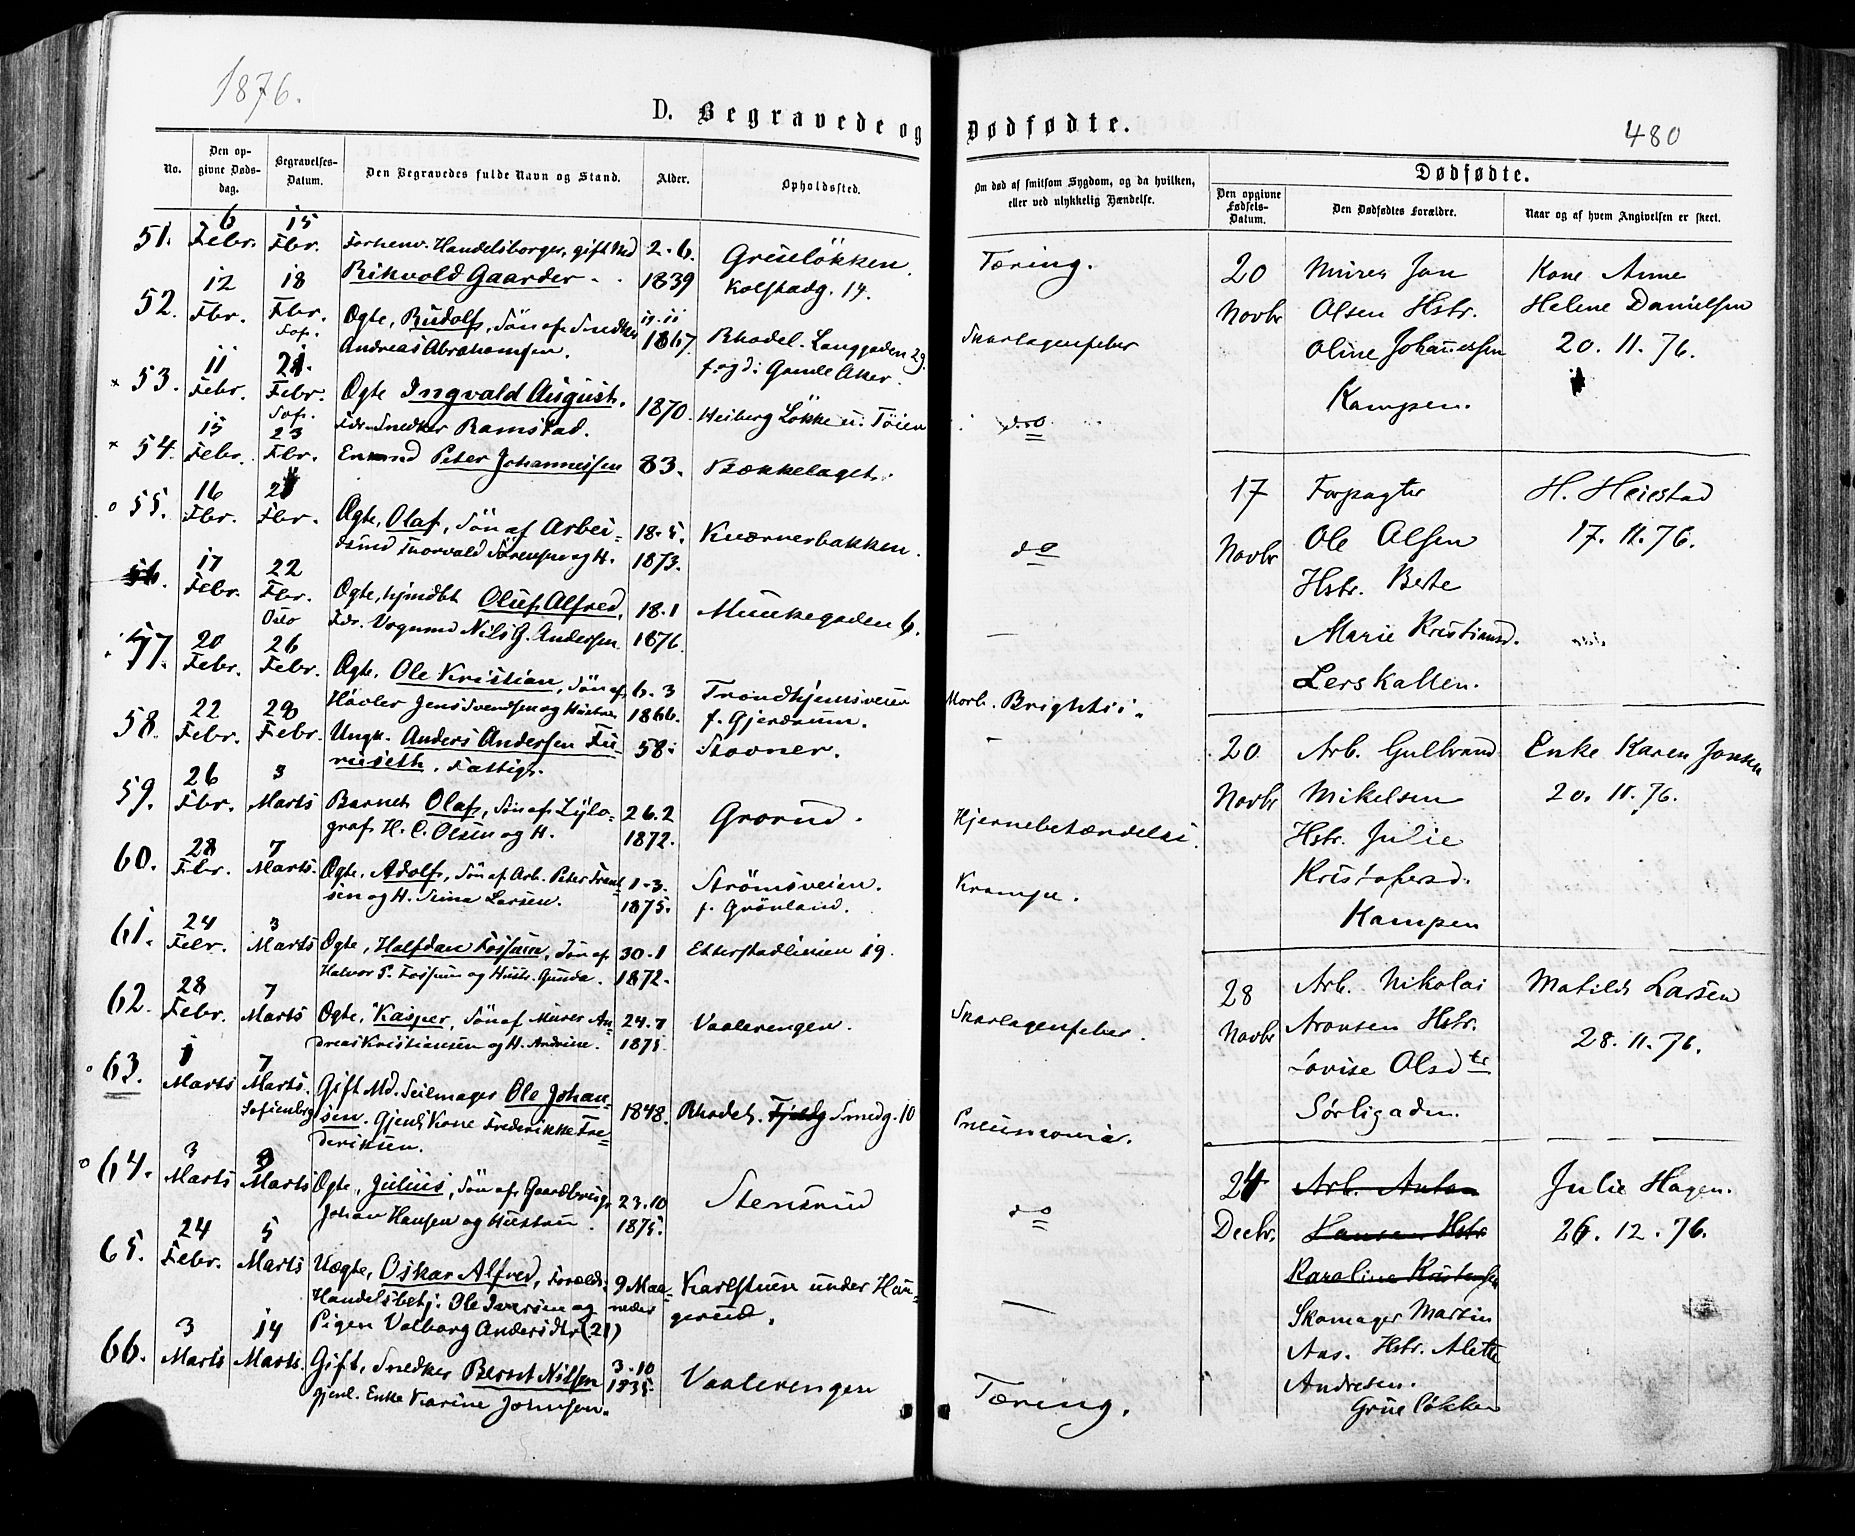 1876.
D. Begravede og Dødfødte.
480
No.
Den opgivne Døds-dag.
Begravelses-Datum.
Den Begravedes fulde Navn og Stand.
Alder.
Opholdssted.
Om død af smitsom Sygdom, og da hvilken, eller ved ulykkelig Hændelse.
Dødfødte.
Den opgivne Fødsels-Datum.
Den Dødfødtes Forældre.
Naar og af hvem Angivelsen er skeet.
51. 6 Febr. 15 Fbr. Forhenv. Handelsborger, gift Md 2-6. Grüneløkken. Tæring.
Rikvold Gaarder 1839 Kolstadg. 14.
52. 12 Fbr. 18 Fbr. Sof. Ægte, Rudolf, Søn af Snedker 11.11 Rhodel. Langgaden 29. Skarlagensfeber
Andreas Abrahamsen. 1867. f. og d: Gamle Aker.
× 53. 11 Febr. 21. Febr. Sof. Ægte Ingvald August. 1870. Heiberg Løkke u. Tøien do
Fdr. Snedker Ramstad.
× 54. 15 Febr. 23 Fbr. Enkemd Peter Johannessen 83. Bækkelaget.
o 55. 16 Fbr. 21 Fbr. Ægte, Olaf, Søn af Arbei- 18-5. Kværnerbakken. do
dsmd Thorvald Sørensen og H. 1873.
56. 17 Febr. 22 Fbr. Oslo Ægte, hjmdbt Oluf Alfred, 18.1 Munkegaden 6. —
Fdr. Vognmd Nils G. Andersen 1876.
57. 20 Febr. 26 Febr. Ægte. Ole Kristian, Søn af 6.3 Trondhjemsveien Morb. Brightii.
Høvler Jens Svendsen og Hustru 1866. f. Gjerdrum.
58. 22 Febr. 28 Febr. Ungk. Anders Andersen Fu- 58. Stovner. -
ruseth. Fattigl.
59. 26 Fbr. 3 Marts Barnet Olaf, Søn af Xylo- 26.2 Grorud. Hjernebetændelse.
graf H. C. Olsen og H. 1872.
60. 28 Fbr. 7 Marts. Ægte, Adolf, Søn af Arb. Peter Frant 1-3. Strömsveien. Krampe.
sen og H. Sina Larsen. 1875. f. Grönland.
61. 24 Febr. 3 Marts Ægte, Halfdan Fossum, Søn af 30-1 Etterstadlinien 19.
Halvor P. Fossum og Hustr. Gunda. 1872.
62. 28 Febr. 7 Marts Ægte, Kasper, Søn af Murer An- 24.7 Vaalerengen. Skarlagensfeber.
dreas Kristiansen og H. Andrine. 1875.
o 63. 1 Marts 7 Marts. Sofienberg Gift Md. Seilmager Ole Johan- 1848. Rhodel. Fjeldg Smedg. 10 Pneumonia.
sen. Gjenl. Kone Frederikke Fre-
deriksen.
o 64. 3 Marts 8 Marts Ægte, Julius, Søn af Gaardbrug. 23.10 Stensrud do
Johan Hansen og Hustru. 1875.
65. 24 Febr. 5 Marts Uægte, Oskar Alfred, Foræld: 9 Maa- Karlstuen under Hau- —
Handelsbetj. Ole Iversen og neder gerud.
Pigen Valborg Andersdtr (21)
66. 3 Marts 14 Marts. Gift, Snedker Bernt Nilsen 3-10 Vaalerengen Tæring.
gjenl. Enke Karine Johnsen. 1835.
20 Novbr Murer Jon Kone Anne
Olsen Hstr. Helene Danielsen
Oline Johannessen 20. 11. 76.
Kampen.
17 Novbr Forpagter H. Heiestad
Ole Olsen 17. 11. 76.
Hstr. Berte
Marie Kristiansd.
Lerskallen.
20 Novbr Arb. Gulbrand Enke Karen Jonsen
Mikelsen 20. 11. 76.
Hstr. Julie
Kristofersd.
Kampen
28 Novbr Arb. Nikolai Matilde Larsen
Aronsen Hstr. 28. 11. 76.
Lovise Olsdtr
Sörligaden.
24 Decbr. Arb. Anton Julie Hagen.
Hansen Hstr 26. 12. 76.
Karoline Kristensen
Skomager Martin
Aas. Hstr. Alette
Andresen.
Grüneløkken